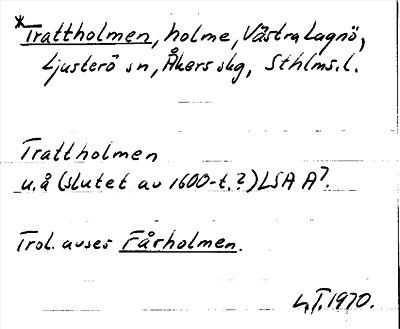 *Trattholmen, holme, Västra Lagnö,
Ljusterö sn, Åkers skg, Sthlms l.
Trattholmen
u.å (slutet av 1600-t.?) LSA A7.
Trol. avses Fårholmen.
L.T. 1970.